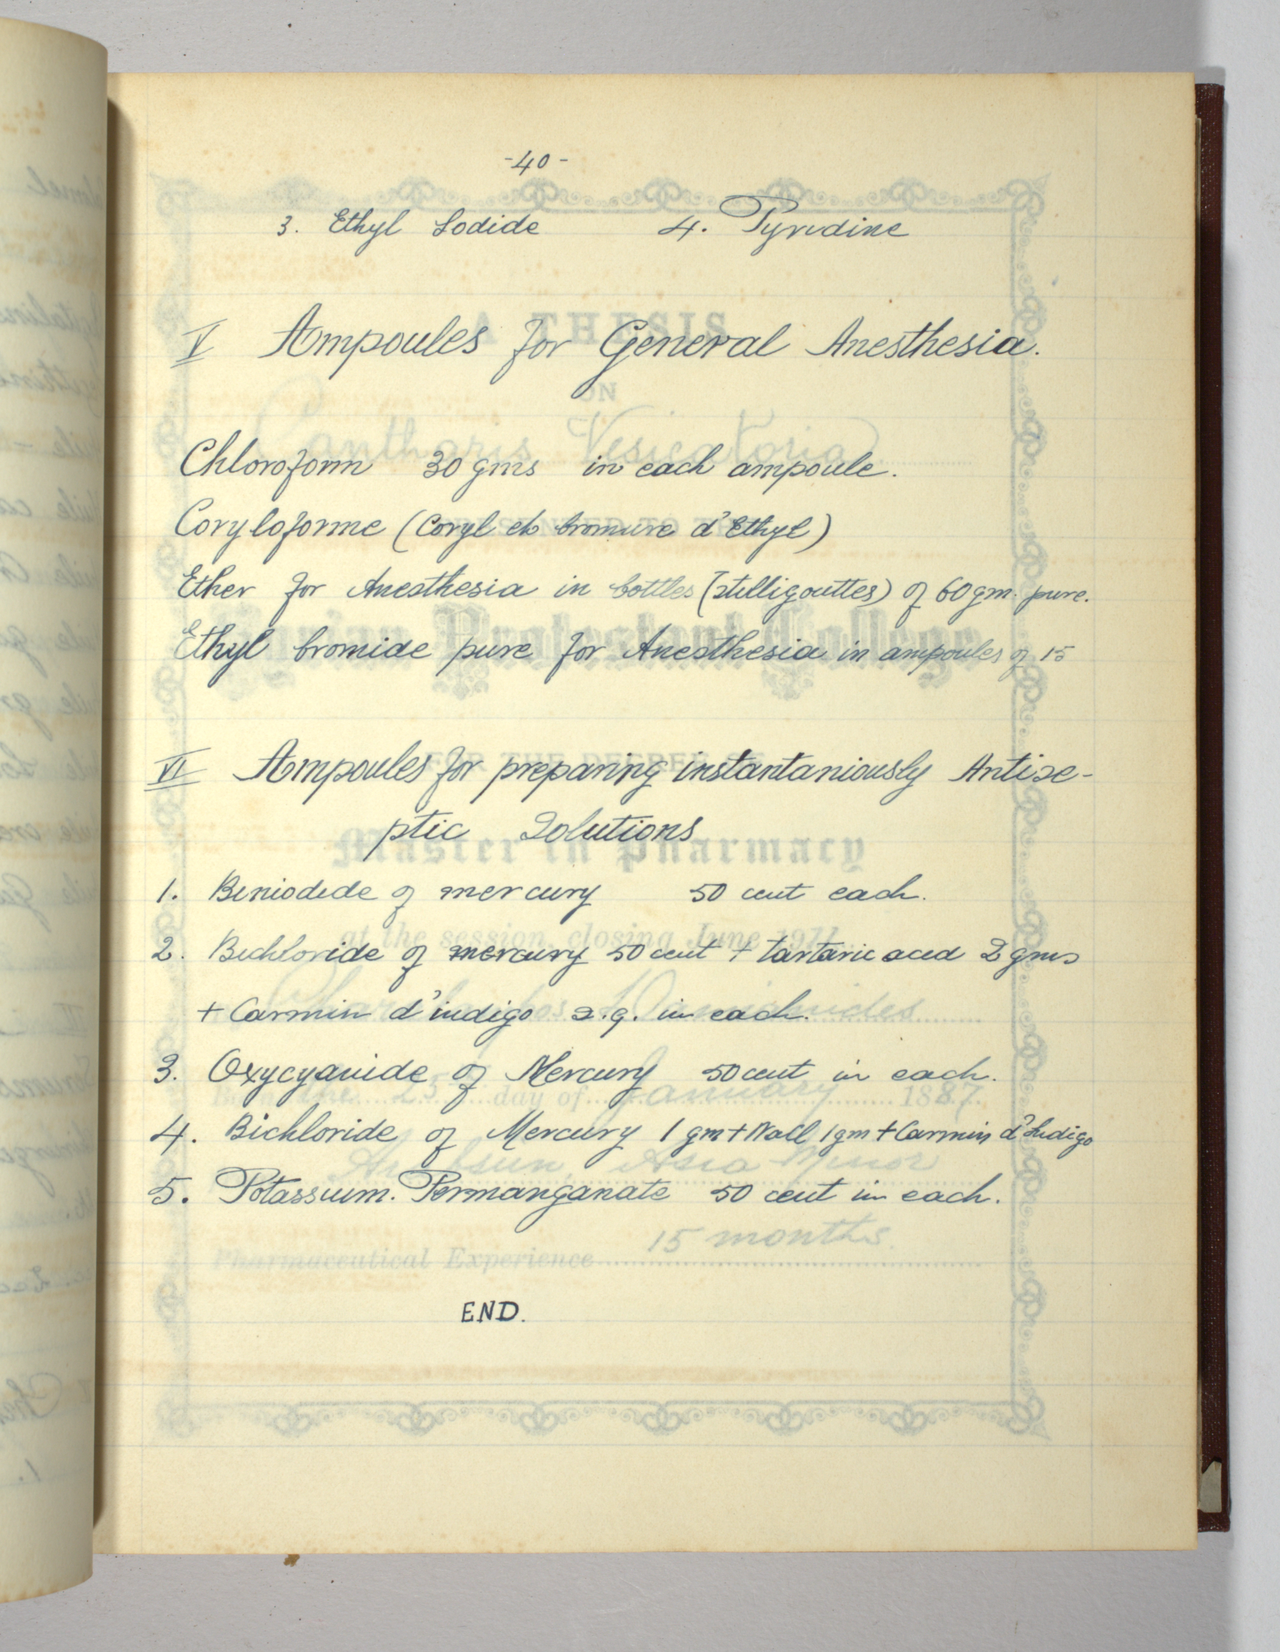 -40-
3. Ethyl Iodide 4. Pyridine
V Ampoules for General Anesthesia.
Chloroform 30 gms in each ampoule.
Coryloforme (Coryl et bromure d'Ethyl)
Ether for Anesthesia in bottles (stilligouttes) of 60 gm. pure.
Ethyl bromide pure for Anesthesia in ampoules of 15
VI Ampoules for preparing instantaniously Antise-
ptic Solutions
1. Biniodide of mercury 50 cent each.
2. Bichloride of mercury 50 cent + tartaric acid 2 gms
+ Carmin d'indigo s.q. in each.
3. Oxycyanide of Mercury 50 cent in each.
4. Bichloride of Mercury 1 gm + NaCl 1 gm + Carmin d'Indigo
5. Potassium. Permanganate 50 cent in each.
END.
A THESIS
ON
Cantharis Vesicatoria
PRESENTED TO THE
Syrian Protestant College
FOR THE DEGREE OF
Master in Pharmacy
at the session, closing June 1911
Born the 25 day of January 1887
Asia Minor
Pharmaceutical Experience 15 months